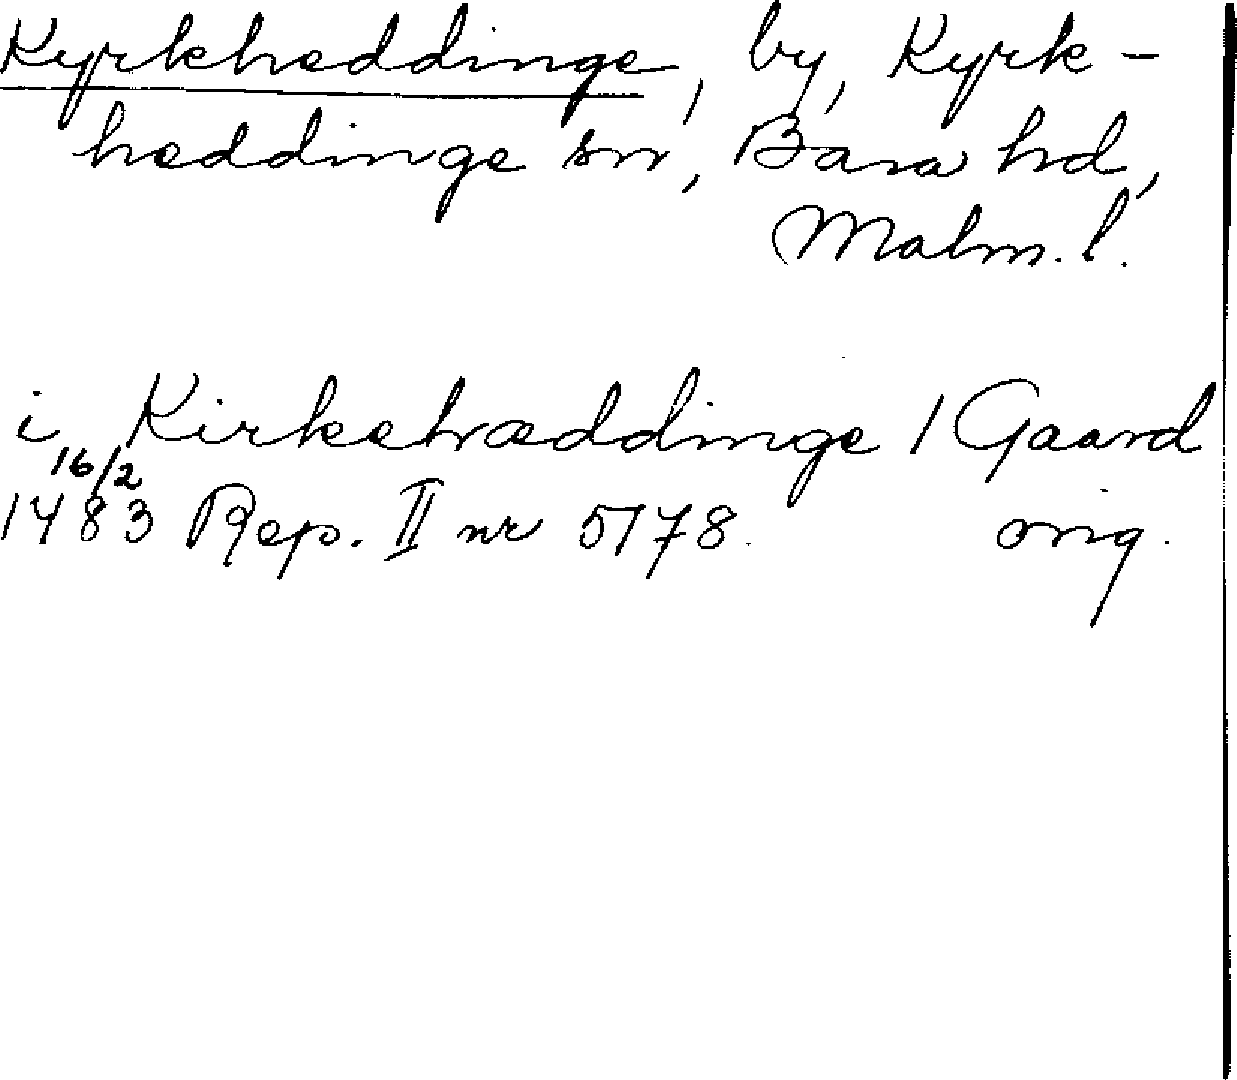 Kyrkheddinge, by, Kyrk-
heddinge sn, Bara hd,
Malm. l.
i Kirkehæddinge 1 Gaard
16/2
1483 Rep. II nr 5178. orig.